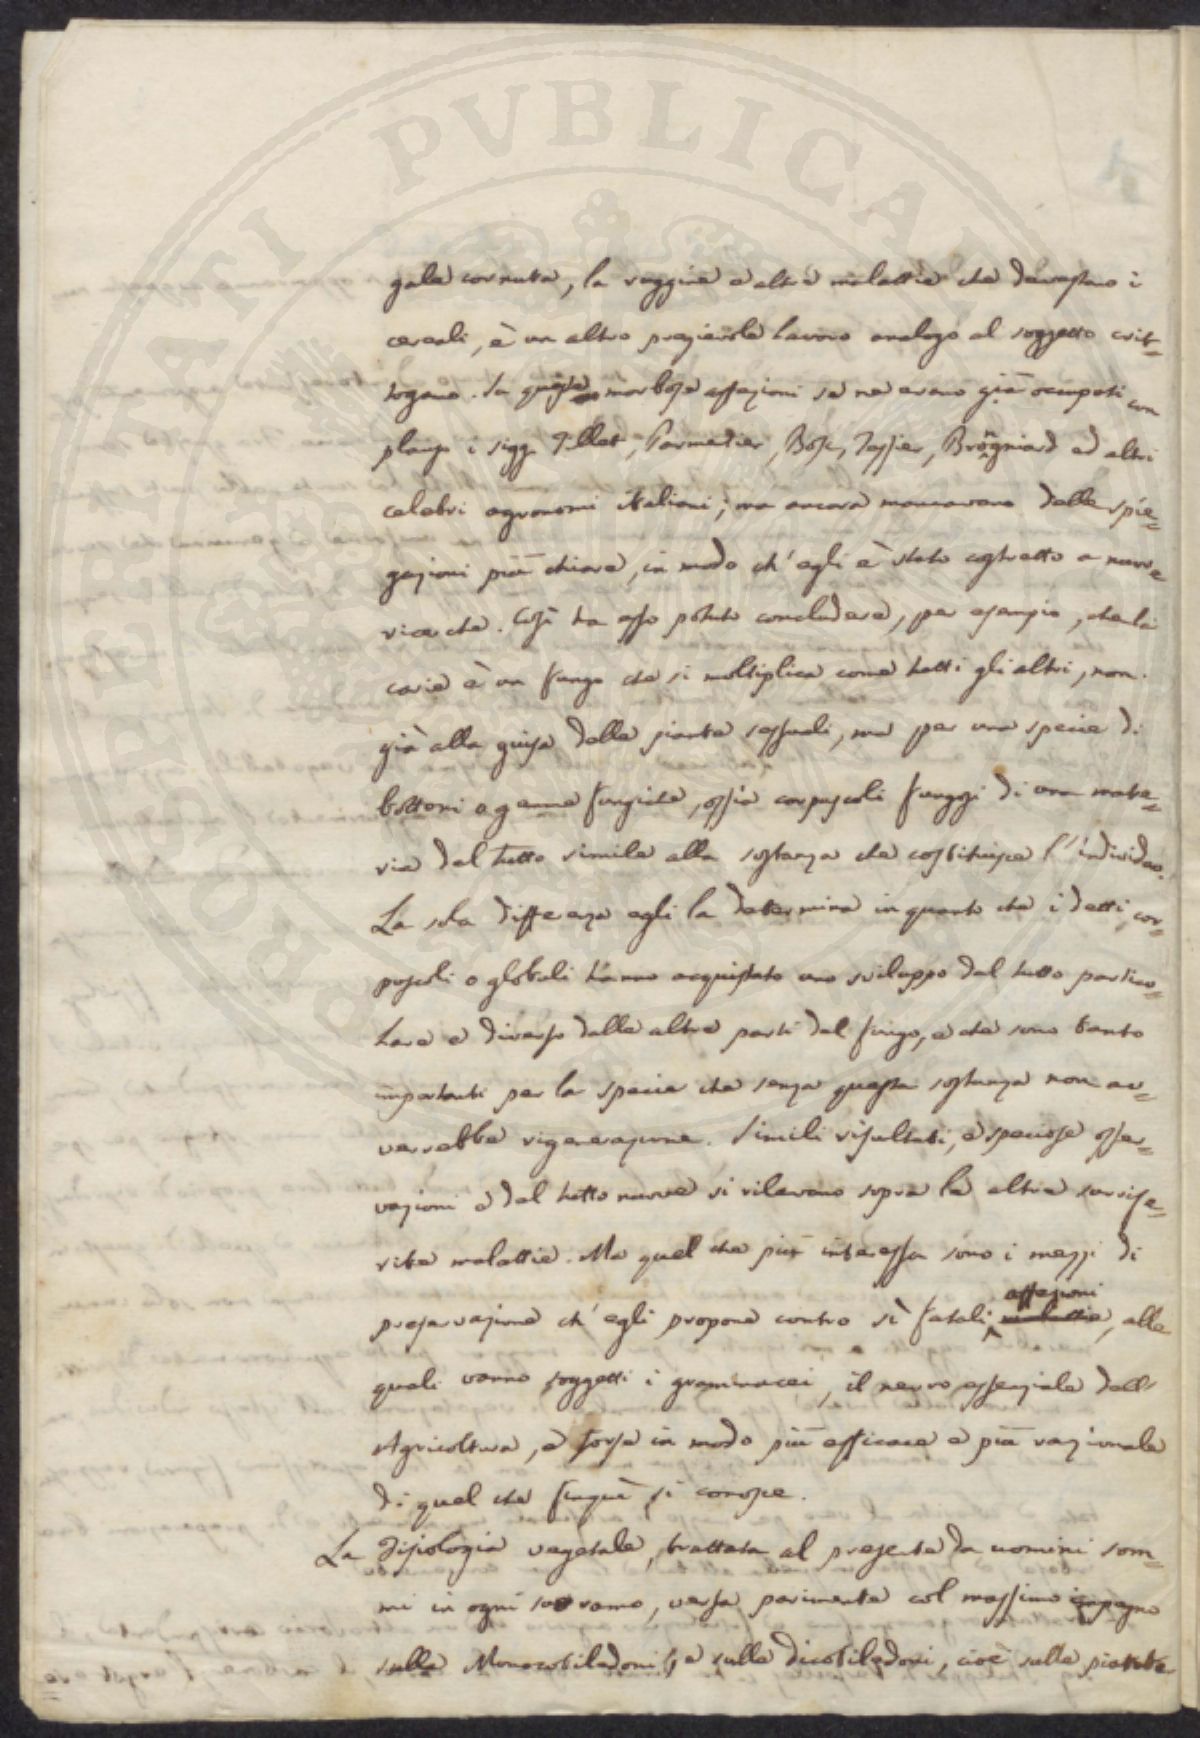 gala cornuta, la ruggine e altre malattie che devastano i
cereali, è un altro pregievole lavoro analogo al soggetto crit=
togamo. Su queste morbose affezioni se ne erano già occupati con
plauso i sigg. Tillet, Parmentier, Bosc, Tessier, Brongniard ed altri
celebri agronomi italiani; ma ancora mancavano delle spie=
gazioni più chiare, in modo ch'egli è stato costretto a nuove
ricerche. Così ha esso potuto concludere, per esempio, che la
carie è un fungo che si moltiplica come tutti gli altri, non
già alla guisa delle piante sessuali, ma per una specie di
bottoni o gemme fungiste, ossia corpuscoli fungosi di una mate=
ria del tutto simile alla sostanza che costituisce l'individuo.
La sola differenza egli la determina in quanto che i detti cor=
puscoli o globuli hanno acquistato uno sviluppo del tutto partico=
lare e diverso dalle altre parti del fungo, e che sono tanto
importanti per la specie che senza questa sostanza non av=
verrebbe rigenerazione. Simili risultati, e speciose osser=
vazioni e del tutto nuove si rilevano sopra le altre surrife=
rite malattie. Ma quel che più interessa sono i mezzi di
preservazione ch'egli propone contro sì fatali affezioni malattie, alle
quali vanno soggetti i graminacei, il nervo essenziale dell'
Agricoltura, e forse in modo più efficace e più razionale
di quel che finquì si conosce.
La Fisiologia vegetale, trattata al presente da uomini som=
mi in ogni suo ramo, versa parimente col massimo impegno
sulle Monocotiledoni, e sulle dicotiledoni, cioè sulle piante
PVBLICAE